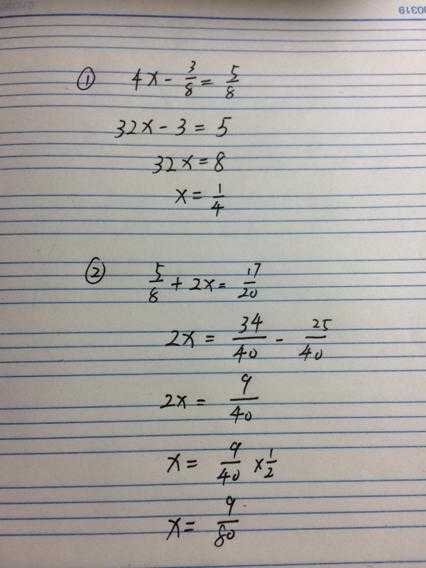 00319
① 4x - 3/8 = 5/8
32x - 3 = 5
32x = 8
x = 1/4
② 5/8 + 2x = 17/20
2x = 34/40 - 25/40
2x = 9/40
x = 9/40 × 1/2
x = 9/80